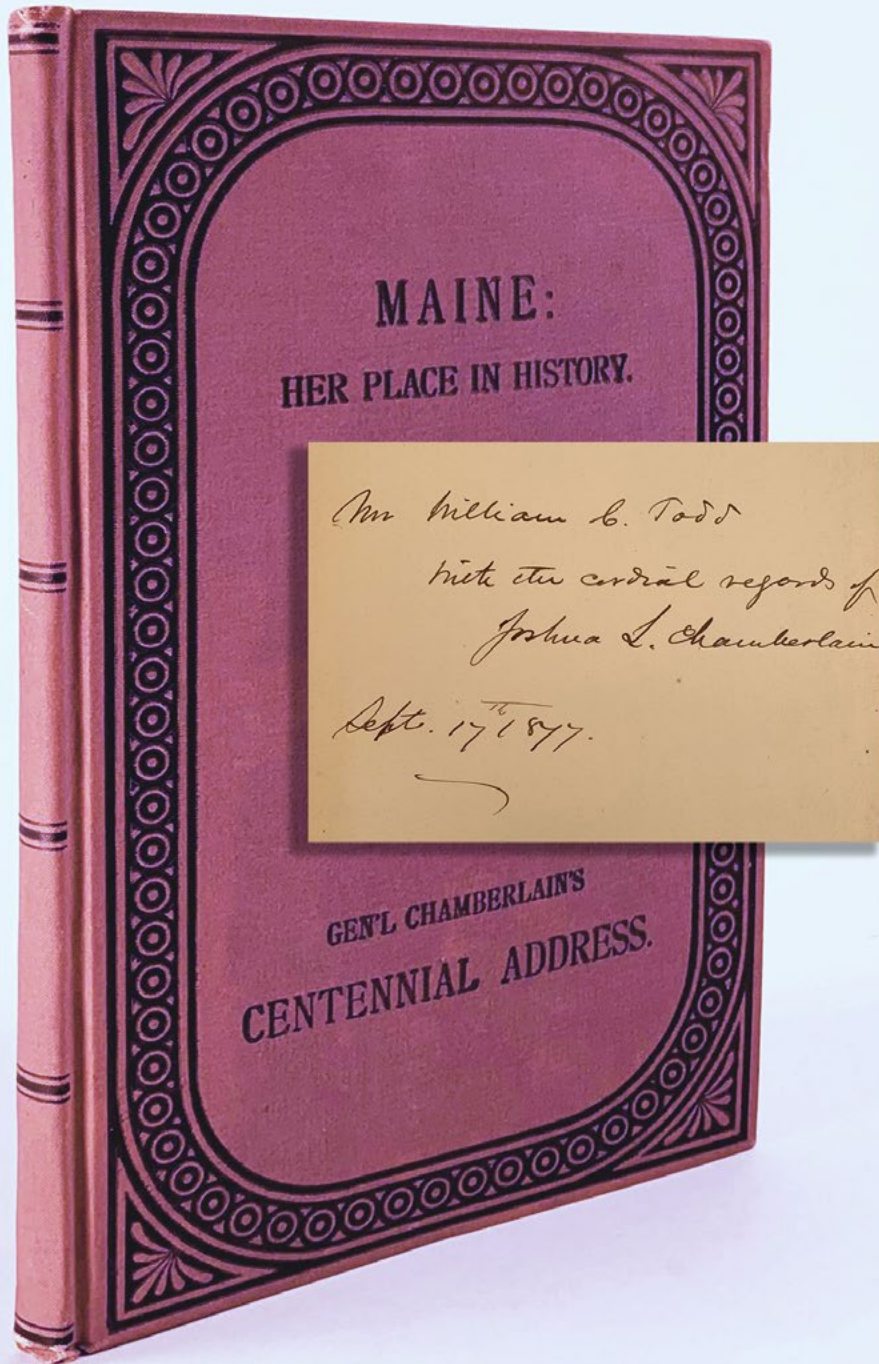 MAINE:
HER PLACE IN HISTORY.
Mr William C. Todd
with the cordial regards of
Joshua L. Chamberlain
Sept. 17th 1877.
GEN'L CHAMBERLAIN'S
CENTENNIAL ADDRESS.